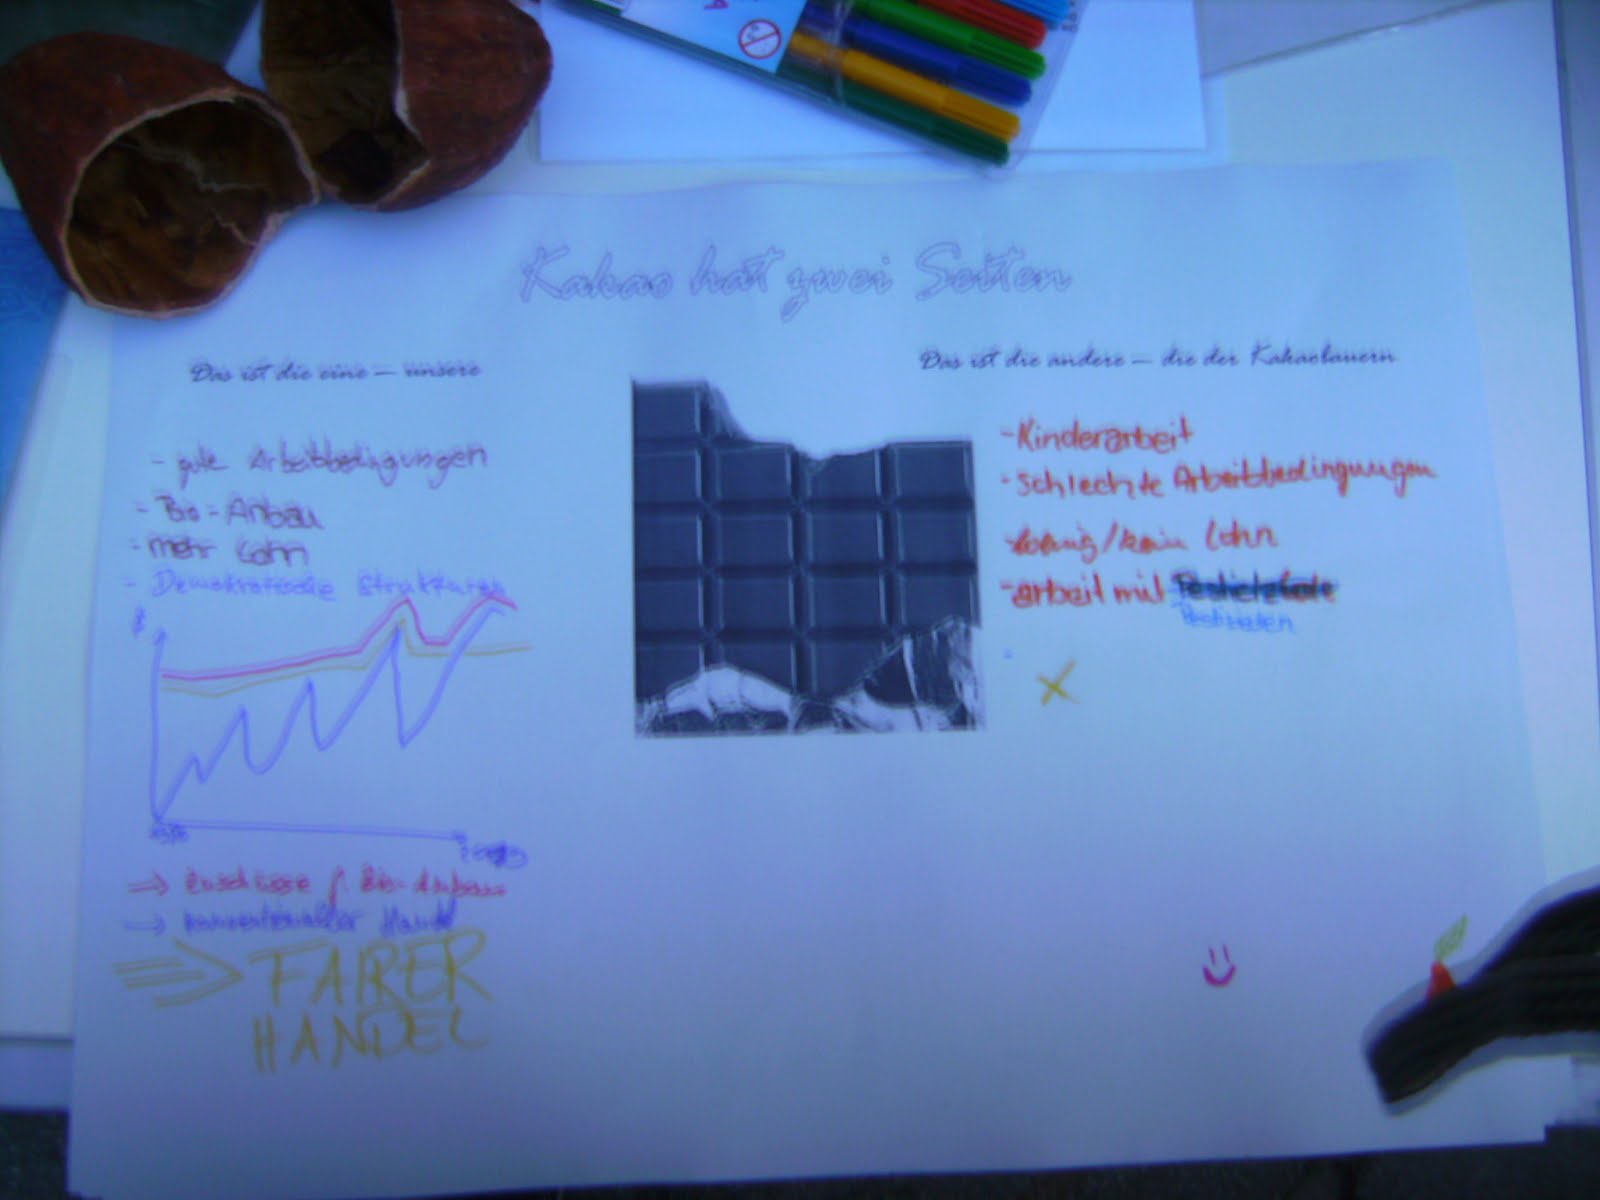 Kakao hat zwei Seiten
Das ist die eine – unsere
- gute Arbeitbedigungen
- Bio-Anbau
- mehr Lohn
- Demokratische Strukturen
$
=> Zuschüsse f. Bio-Anbau
-> konventioneller Handel
=> FAIRER
HANDEL
Das ist die andere – die der Kakaobauern
- Kinderarbeit
- schlechte Arbeitbedingungen
- wenig/kein Lohn
- arbeit mit
Pestiziden